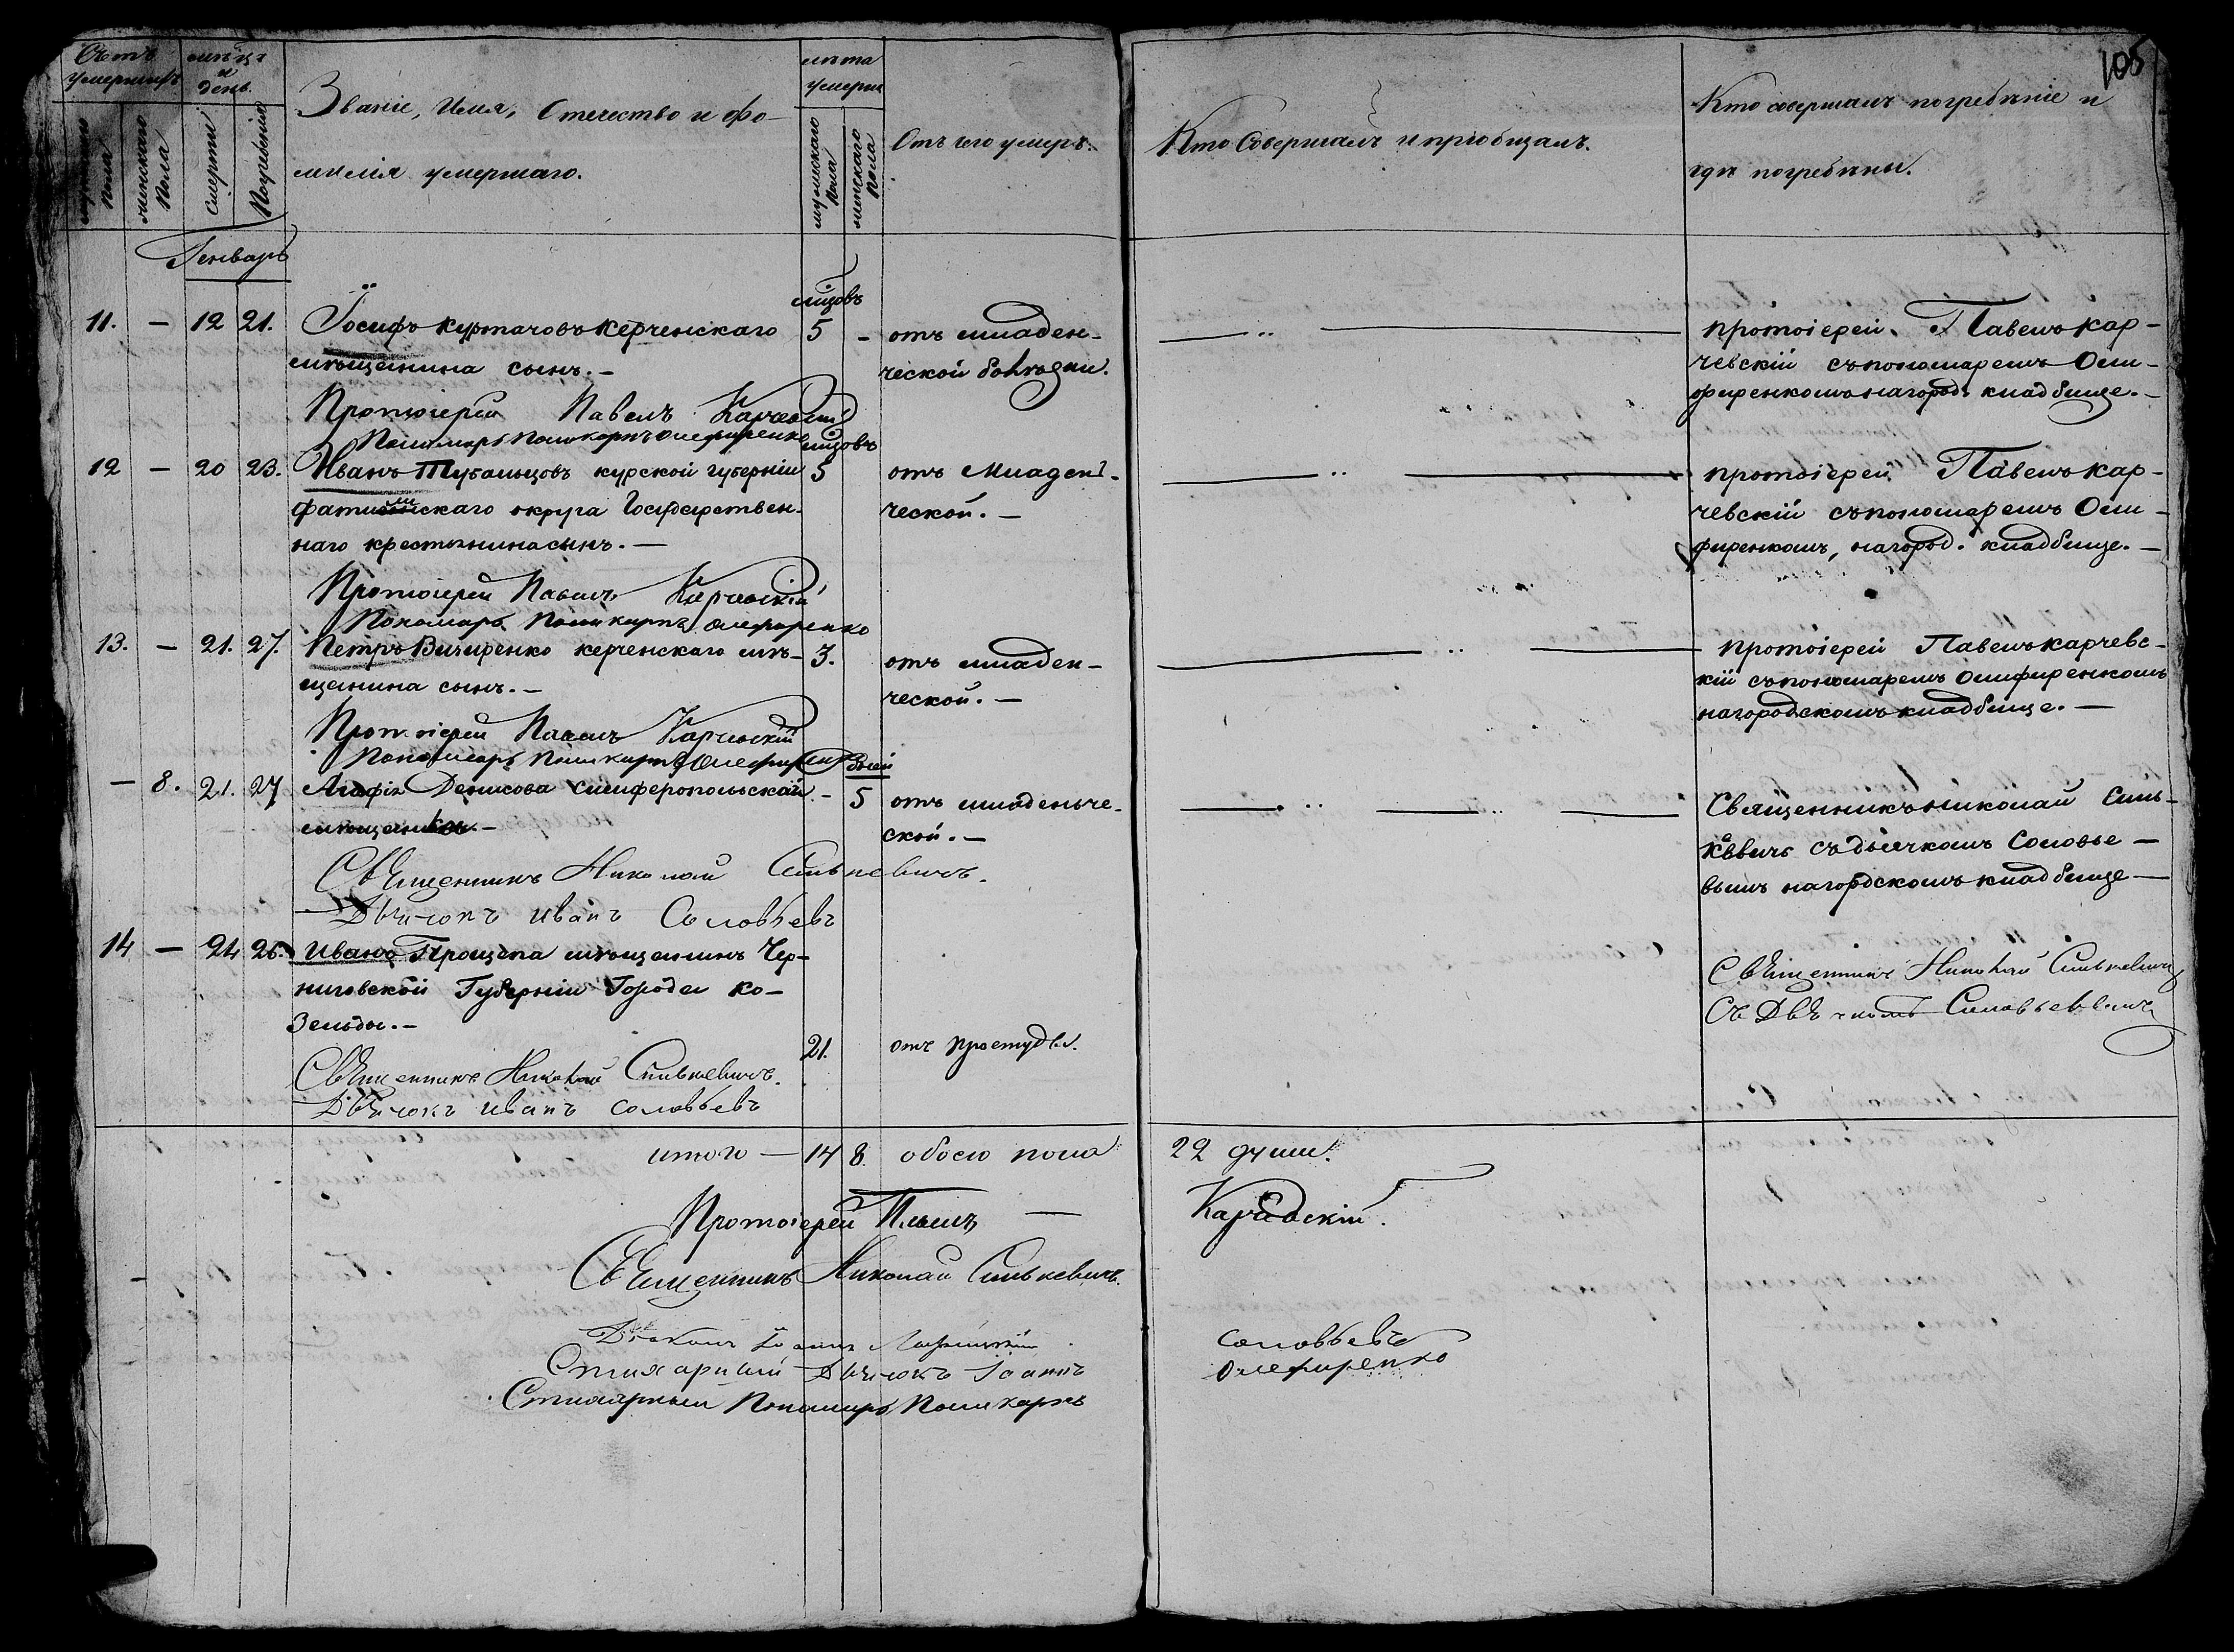 105
Счетъ умершихъ
мѣсяцъ и день.
Званіе, Имя, Отечество и фа-
милія умершаго.
лѣта умерш
Отъ чего умеръ.
Кто Совершалъ и пріобщалъ.
Кто совершалъ погребѣніе и
гдѣ погребены.
мужскаго пола
женскаго пола
Смерти
Погребенія
мужскаго пола
женскаго пола
Генварь
11. — 12 21. Іосифъ керченскаго
мѣщанина сынъ. —
мѣсяцовъ
5 — отъ младен-
ческой болѣзни.
протоіерей. Павелъ Кар-
чевскій съ пономаремъ Оли-
фиренкомъ на город. кладбище. —
Протоіерей Павелъ Карчевскій
Пономарь Поликарпъ Олефиренко
12 — 20 23. Иванъ Тубольцовъ курской губерніи
фати скаго округа Государствен-
наго крестьянина сынъ. —
мѣсяцовъ
5 отъ Младен-
ческой. —
протоіерей Павелъ Кар-
чевскій съ пономаремъ Оли-
фиренкомъ, на город. кладбище. —
Протоіерей Павелъ Карчевскій
Пономарь Поликарпъ Олефиренко
13. — 21. 27. Петръ Вичиренко керченскаго мѣ-
щанина сынъ. —
3. отъ младен-
ческой. —
протоіерей Павелъ Карчевс-
кій съ пономаремъ Олифиренкомъ
на городскомъ кладбище. —
Протоіерей Павелъ Карчевскій
Пономарь Поликарпъ Олефиренко
— 8. 21. 27 Агафія Денисова симферопольской
мѣщанки. —
дней
— 5 отъ младенче-
ской. —
Священникъ Николай Силь-
кевичъ съ дьячкомъ Соловье-
вымъ на городскомъ кладбище —
Священникъ Николай Силькевичъ.
Дьячокъ Иванъ Соловьевъ
14 — 24 26. Иванъ Прощѣпа мѣщанинъ Чер-
ниговской Губерніи Города Ко-
зельды. —
21. отъ простуды.
Священникъ Николай Силькевичъ
Съ Дьячкомъ Соловьевымъ
Священникъ Николай Силькевичъ.
Дьячокъ Иванъ Соловьевъ
итого — 14 8. обоего пола 22 души.
Протоіерей Павелъ — Карчевскій.
Священникъ Николай Силькевичъ.
Діаконъ Іоаннъ
Стихарный Дьячокъ Іоаннъ Соловьевъ
Стихарный Пономарь Поликарпъ Олефиренко